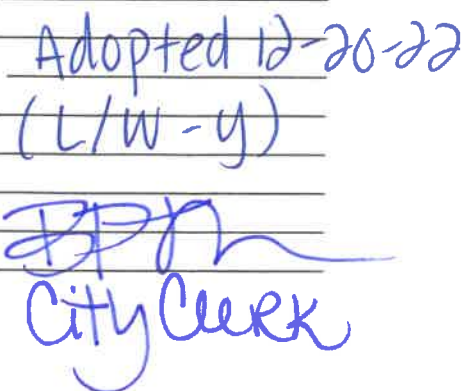 Adopted 12-20-22
(L/W-y)
City Clerk